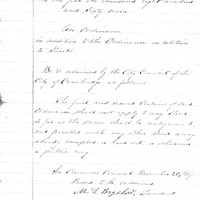 and Sixty-Seven.
An Ordinance
in addition to the Ordinance in relation
to Streets.
Be it ordained by the City Council of the
City of Cambridge as follows
The first and second Sections of said
Ordinance shall not apply to any Street
so far as the same shall be
and parallel with any other Street or way
already accepted, or laid out, or
a public way.
In Common Council November 20, 1867
Passed to be ordained
President